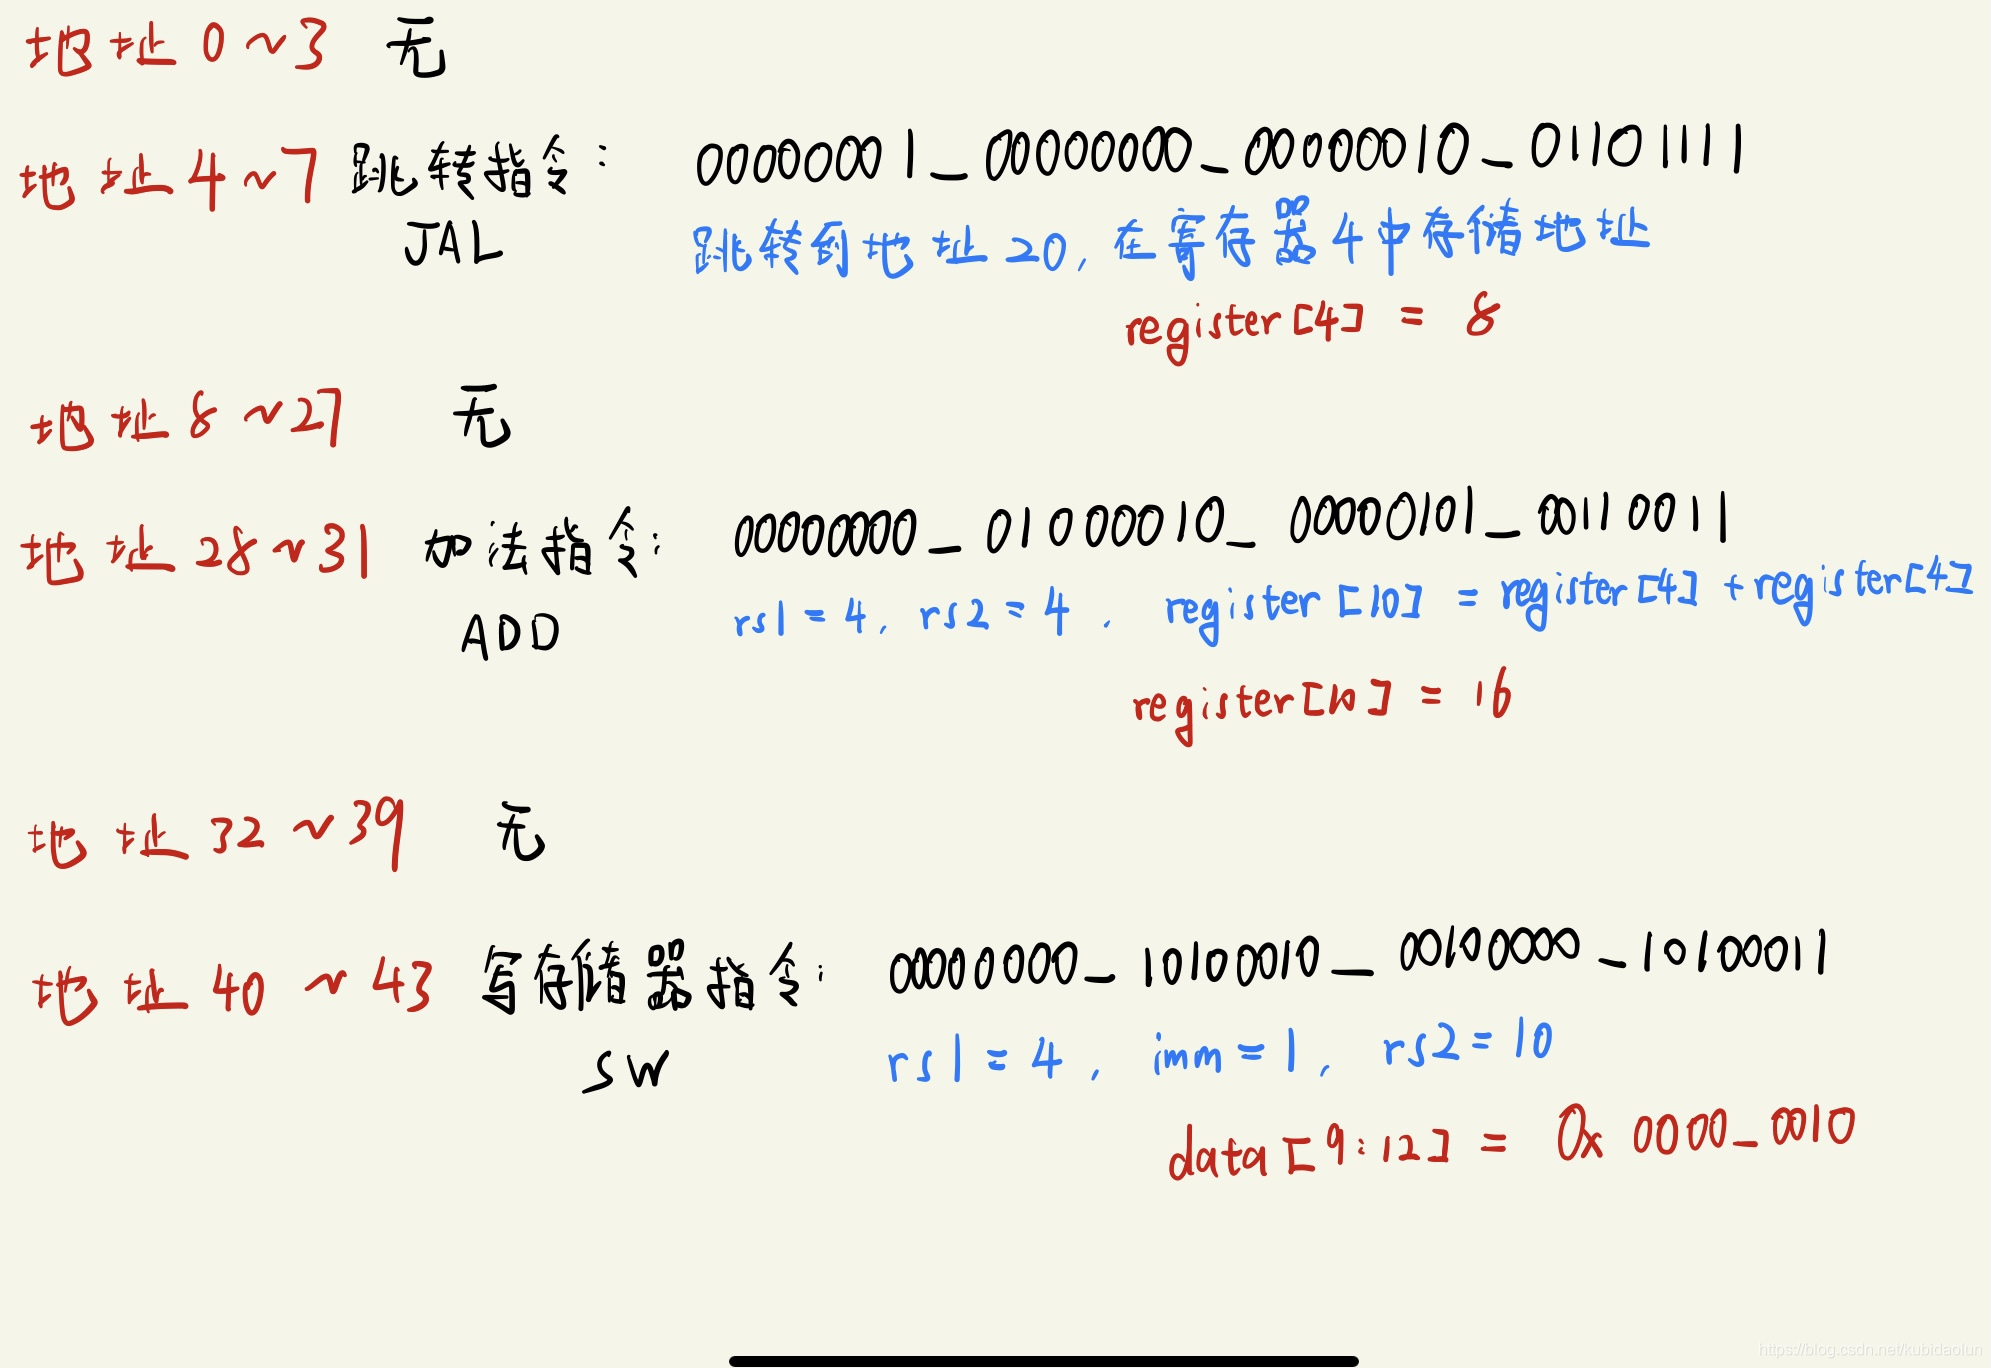 地址 0~3 无
地址 4~7 跳转指令： 00000001_00000000_00000010_01101111
JAL 跳转到地址20, 在寄存器4中存储地址
register[4] = 8
地址 8~27 无
地址 28~31 加法指令： 00000000_01000010_00000101_00110011
ADD rs1=4, rs2=4, register[10] = register[4]+register[4]
register[10] = 16
地址 32~39 无
地址 40~43 写存储器指令： 00000000_10100010_00100000_10100011
SW rs1=4, imm=1, rs2=10
data[9:12] = 0x 0000_0010
https://blog.csdn.net/kubidaolun